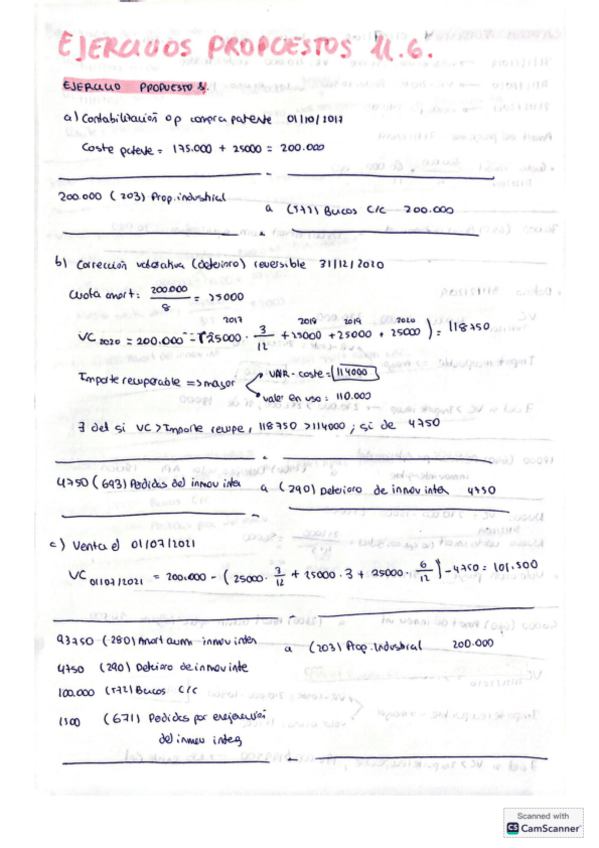 EJERCICIOS PROPUESTOS 11.6.
EJERCICIO PROPUESTO 1.
a) Contabilización op compra patente 01/10/2017
Coste patente = 175.000 + 25000 = 200.000
200.000 (203) Prop. industrial
a (572) Bucos c/c 200.000
b) Corrección valorativa (deterioro) reversible 31/12/2020
Cuota amort: 200.000 / 8 = 25000
2017 2018 2019 2020
VC 2020 = 200.000 - (25000 · 3/12 + 25000 + 25000 + 25000) = 118750
Importe recuperable => mayor
VAR - coste = 114000
valor en uso = 110.000
∃ det si VC > Importe recupe, 118750 > 114000; si de 4750
4750 (693) Pedidas del inmov inter a (290) Deterioro de inmov inter 4750
c) Venta el 01/07/2021
VC 01/07/2021 = 200.000 - (25000 · 3/12 + 25000 · 3 + 25000 · 6/12) - 4750 = 101.500
93750 (280) Amort acum inmov inter
a (203) Prop. Industrial 200.000
4750 (290) Deterioro de inmov inte
100.000 (572) Bucos c/c
1500 (671) Pedidas por enajenación
del inmov integ
Scanned with
CS CamScanner